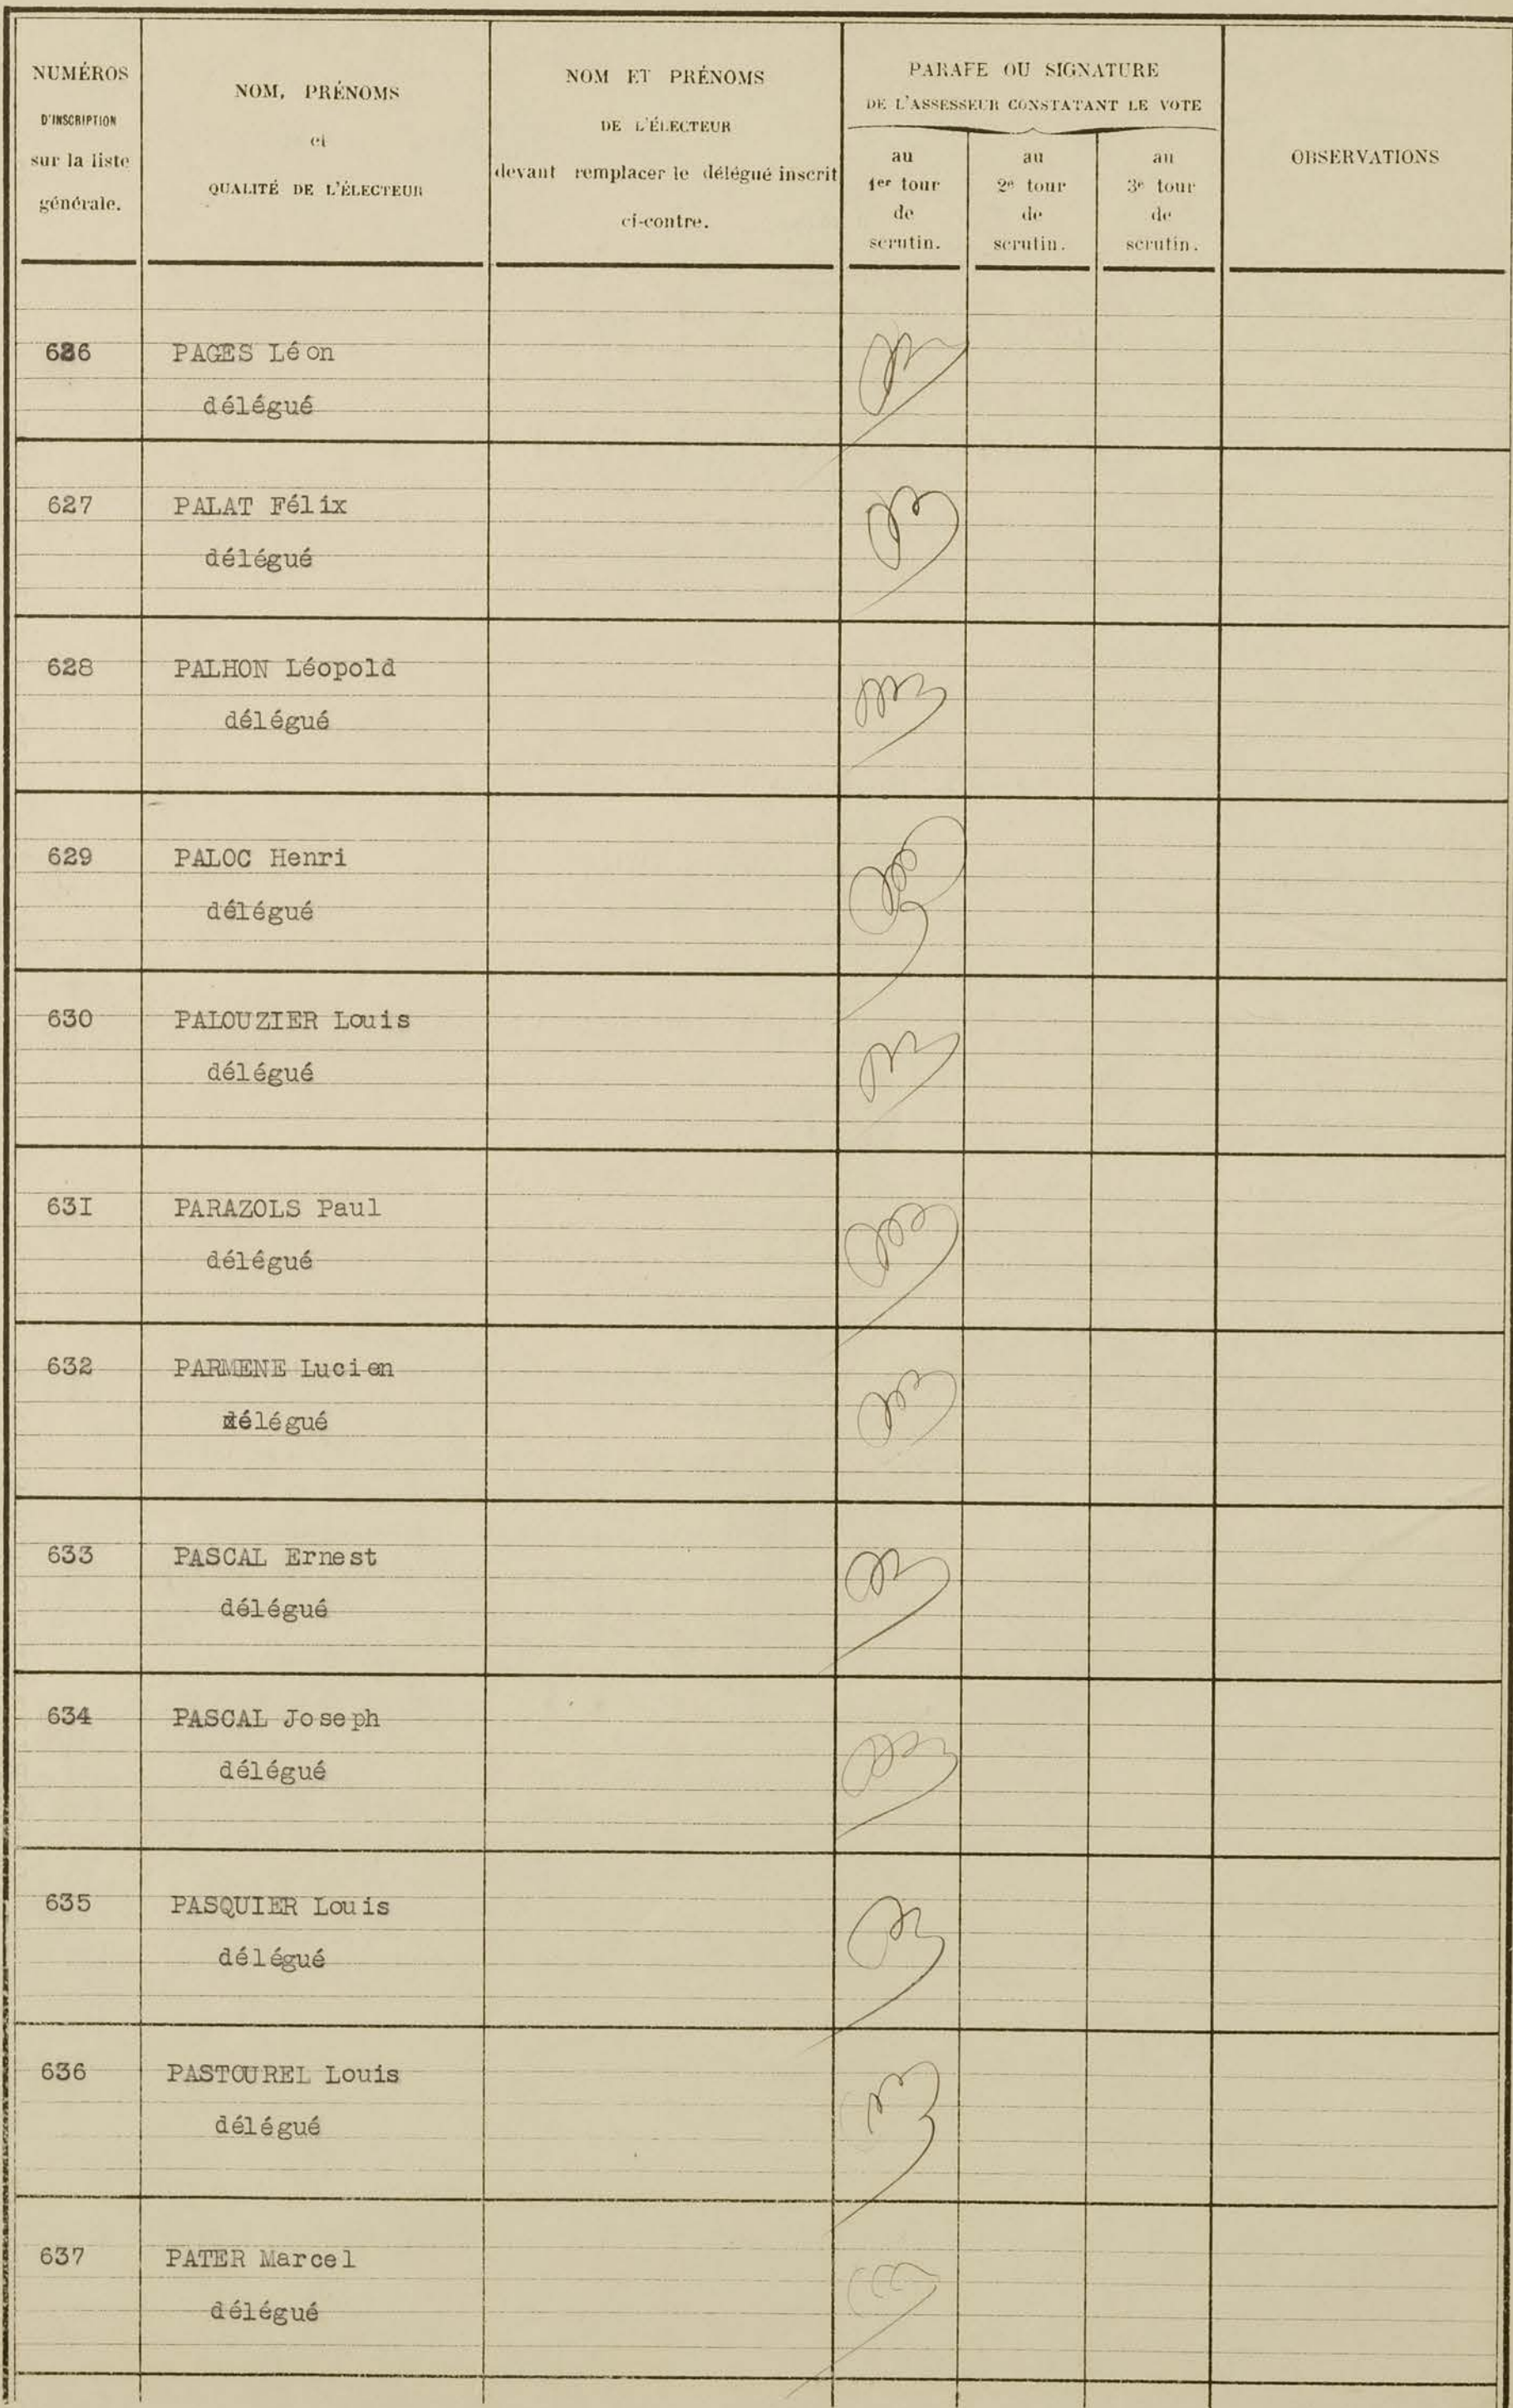 NUMÉROS
D'INSCRIPTION
sur la liste
générale.
NOM, PRÉNOMS
et
QUALITÉ DE L'ÉLECTEUR
NOM ET PRÉNOMS
DE L'ÉLECTEUR
devant remplacer le délégué inscrit
ci-contre.
PARAFE OU SIGNATURE
DE L'ASSESSEUR CONSTATANT LE VOTE
au
1er tour
de
scrutin.
au
2e tour
de
scrutin.
au
3e tour
de
scrutin.
OBSERVATIONS
626 PAGES Léon
délégué
627 PALAT Félix
délégué
628 PALHON Léopold
délégué
629 PALOC Henri
délégué
630 PALOUZIER Louis
délégué
63I PARAZOLS Paul
délégué
632 PARMENE Lucien
délégué
633 PASCAL Ernest
délégué
634 PASCAL Joseph
délégué
635 PASQUIER Louis
délégué
636 PASTOUREL Louis
délégué
637 PATER Marcel
délégué